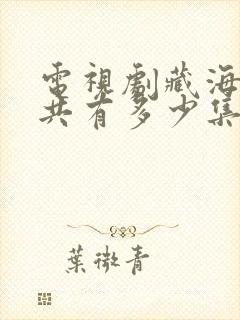 電視劇藏海
共有多少集
葉微青